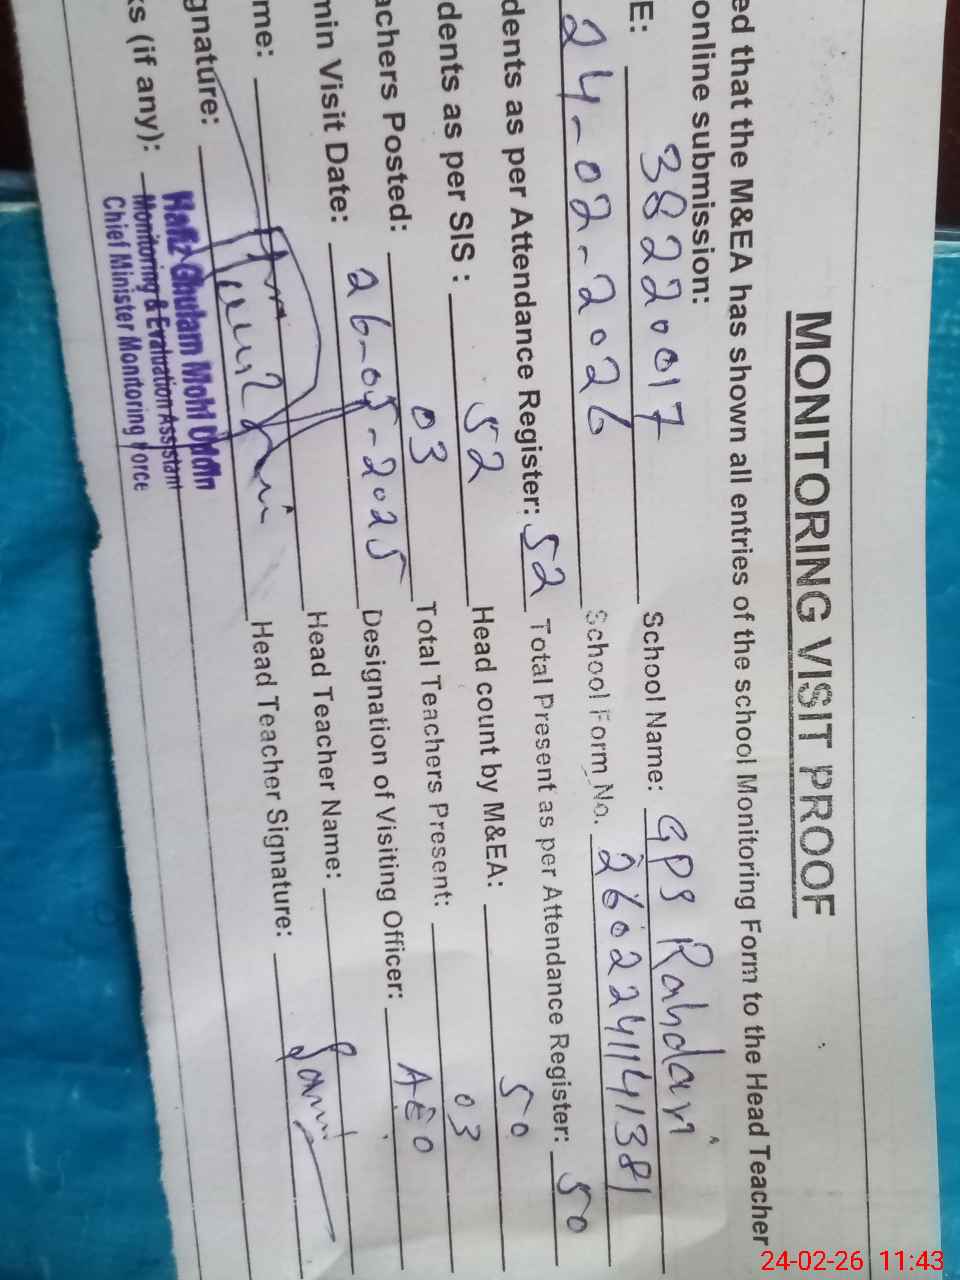 MONITORING VISIT PROOF
ed that the M&EA has shown all entries of the school Monitoring Form to the Head Teacher
online submission:
E: 38220017 School Name: GPS Rahdari
24-02-2026 School Form No. 2602241141381
dents as per Attendance Register: 52 Total Present as per Attendance Register: 50
dents as per SIS : 52 Head count by M&EA: 50
achers Posted: 03 Total Teachers Present: 03
min Visit Date: 26-05-2025 Designation of Visiting Officer: AEO
me: Head Teacher Name:
gnature: Head Teacher Signature:
ks (if any):
Hafiz Ghulam Mohi Uddin
Monitoring & Evaluation Assistant
Chief Minister Monitoring Force
24-02-26 11:43